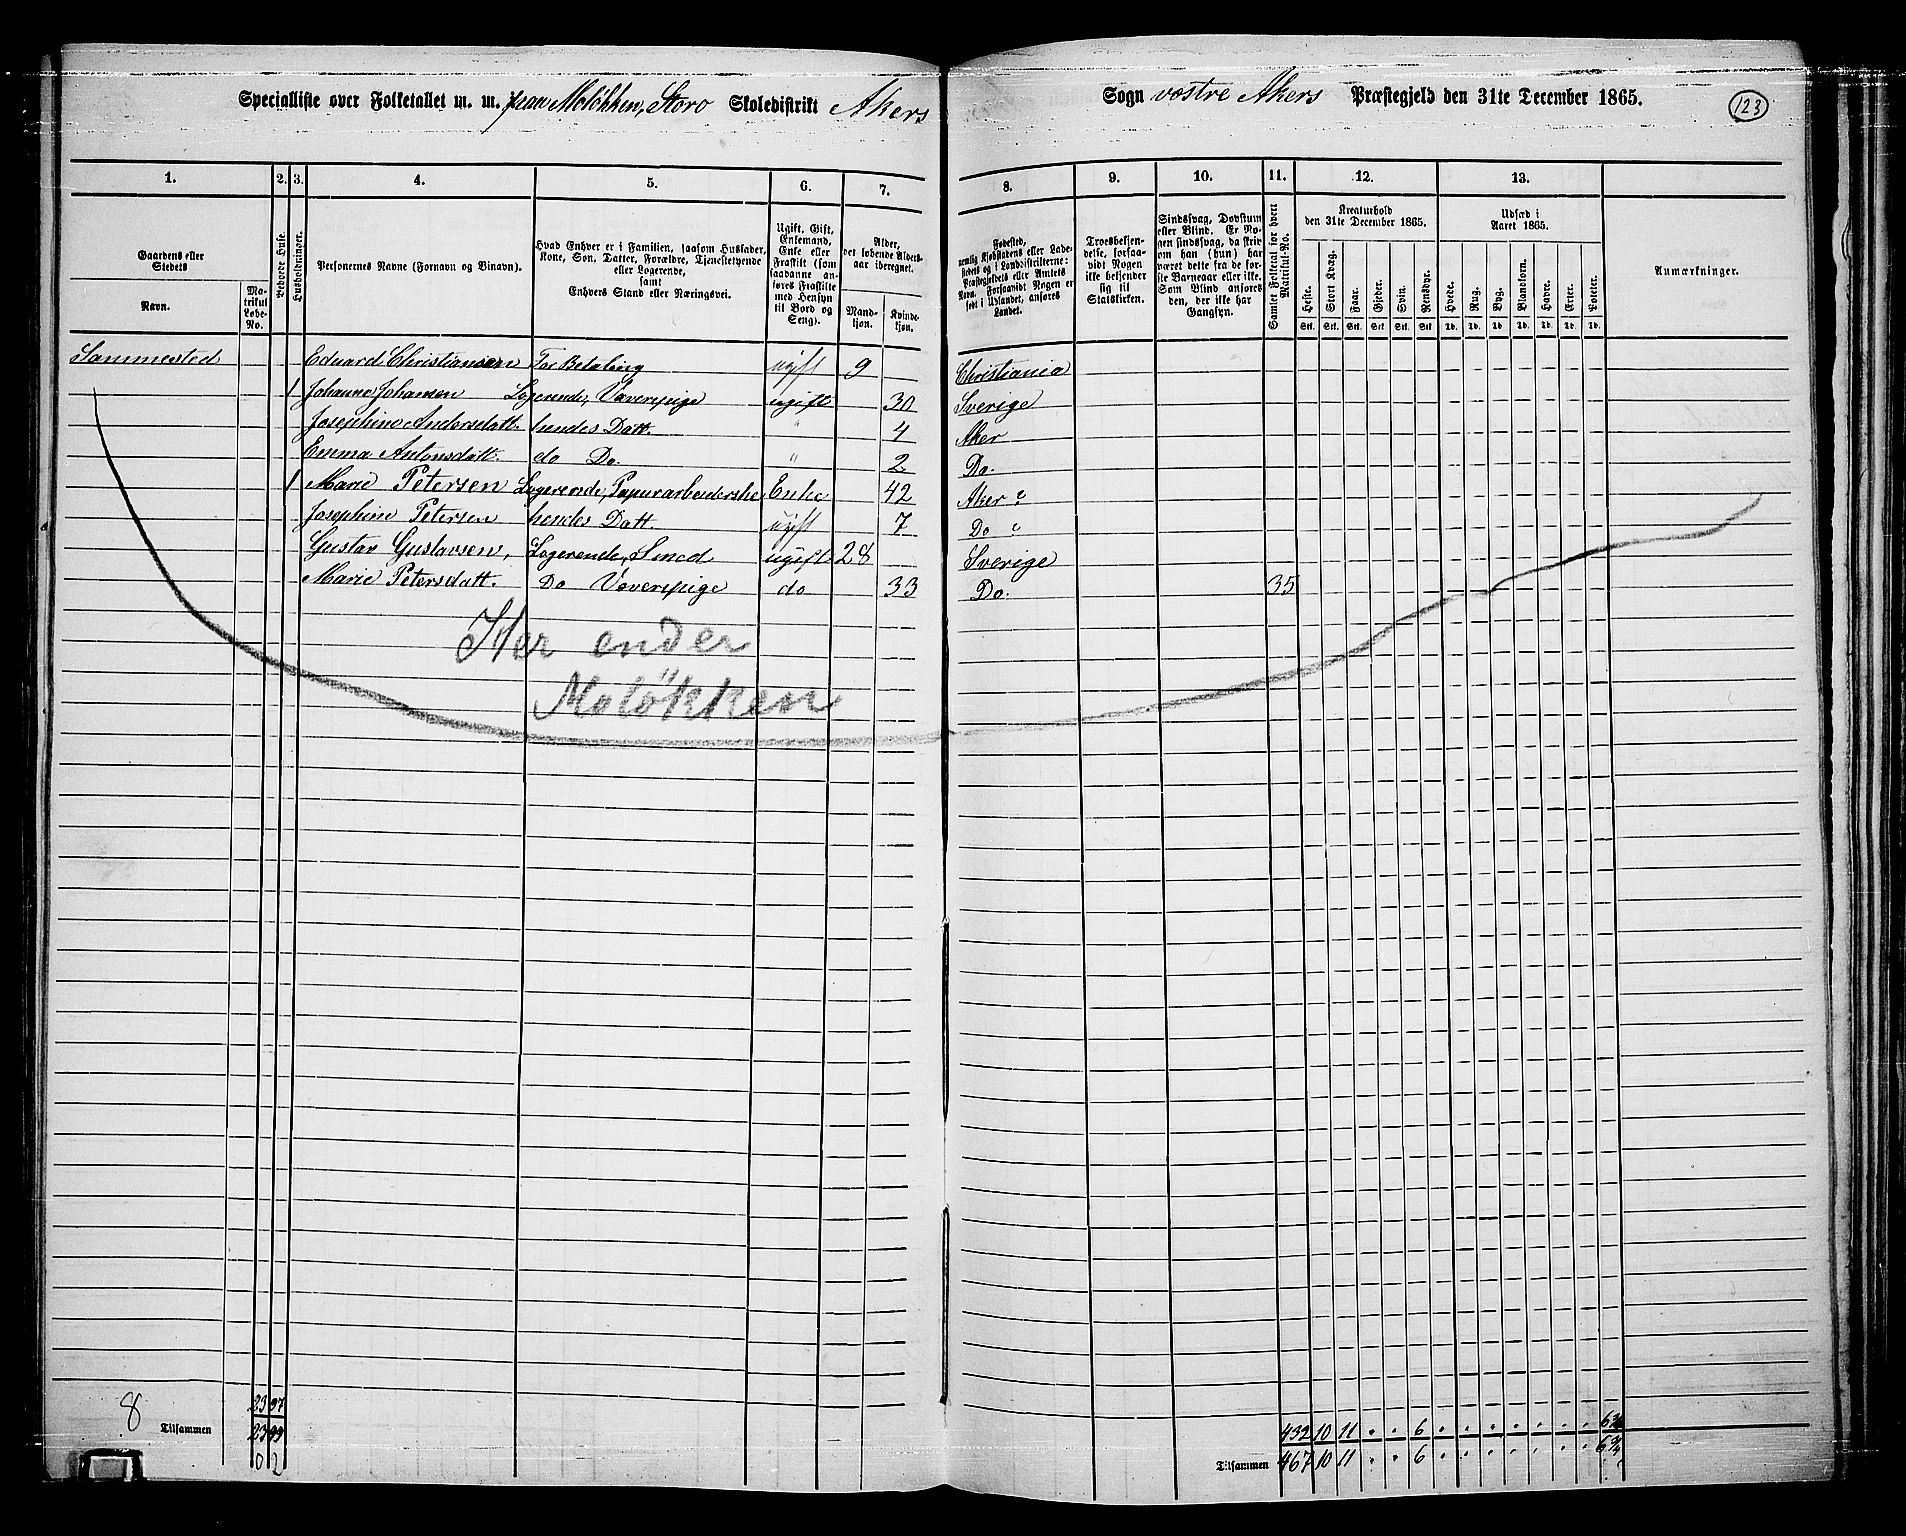 Specialliste over Folketallet m. m. paa Moløkken, Storo Skoledistrikt Akers Sogn vestre Akers Præstegjeld den 31te December 1865.
123
1. 2. 3. 4. 5. 6. 7. 8. 9. 10. 11. 12. 13.
Gaardens eller Stedets
Navn.
Matrikul Løbe-No.
Beboede Huse.
Husholdninger.
Personernes Navne (Fornavn og Binavn).
Hvad Enhver er i Familien, saasom Husfader, Kone, Søn, Datter, Forældre, Tjenestetyende eller Logerende, samt Enhvers Stand eller Næringsvei.
Ugift, Gift, Enkemand, Enke eller Fraskilt (som saadanne anføres Fraskilte med Hensyn til Bord og Seng).
Alder, det løbende Aldersaar iberegnet.
Mandkjøn. Kvindekjøn.
Fødested, nemlig Kjøbstadens eller Ladestedets og i Landdistrikterne: Præstegjeldets eller Amtets Navn. Forsaavidt Nogen er født i Udlandet, anføres Landet.
Troesbekjendelse, forsaavidt Nogen ikke bekjender sig til Statskirken.
Sindssvag, Døvstum eller Blind. Er Nogen sindssvag, da skriv om han (hun) har været dette fra de første Barneaar eller ikke. Som Blind anføres den, der ikke har Gangsyn.
Samlet Folketal for hvert Matrikul-No.
Kreaturhold den 31te December 1865.
Heste. Stort Kvæg. Faar. Gjeder. Svin. Rensdyr.
Stk. Stk. Stk. Stk. Stk. Stk
Udsæd i Aaret 1865.
Hvede. Rug. Byg. Blandkorn. Havre. Erter. Poteter.
Td. Td. Td. Td. Td. Td. Td.
Anmærkninger.
Sammested Eduard Christiansen For Betaling ugift 9 Christiania
1 Johanne Johansen Logerende, Væverpige ugift 30 Sverige
Josephine Andersdatt. hendes Datt. " 4 Aker
Emma Antonsdatt. do Do. " 2 Do.
1 Marie Petersen Logerende, Papirarbeiderske Enke 42 Aker ?
Josephine Petersen hendes Datt. ugift 7 Do ?
Gustav Gustavsen, Logerende, Smed ugift 28 Sverige
Marie Petersdatt. Do Væverpige do 33 Do. 35
Her ender
Moløkken
8
23 97
Tilsammen 23 99
0 2
432 10 11 . . 6 . . . . . . 6¾
Tilsammen 467 10 11 . . 6 . . . . . . 6¾